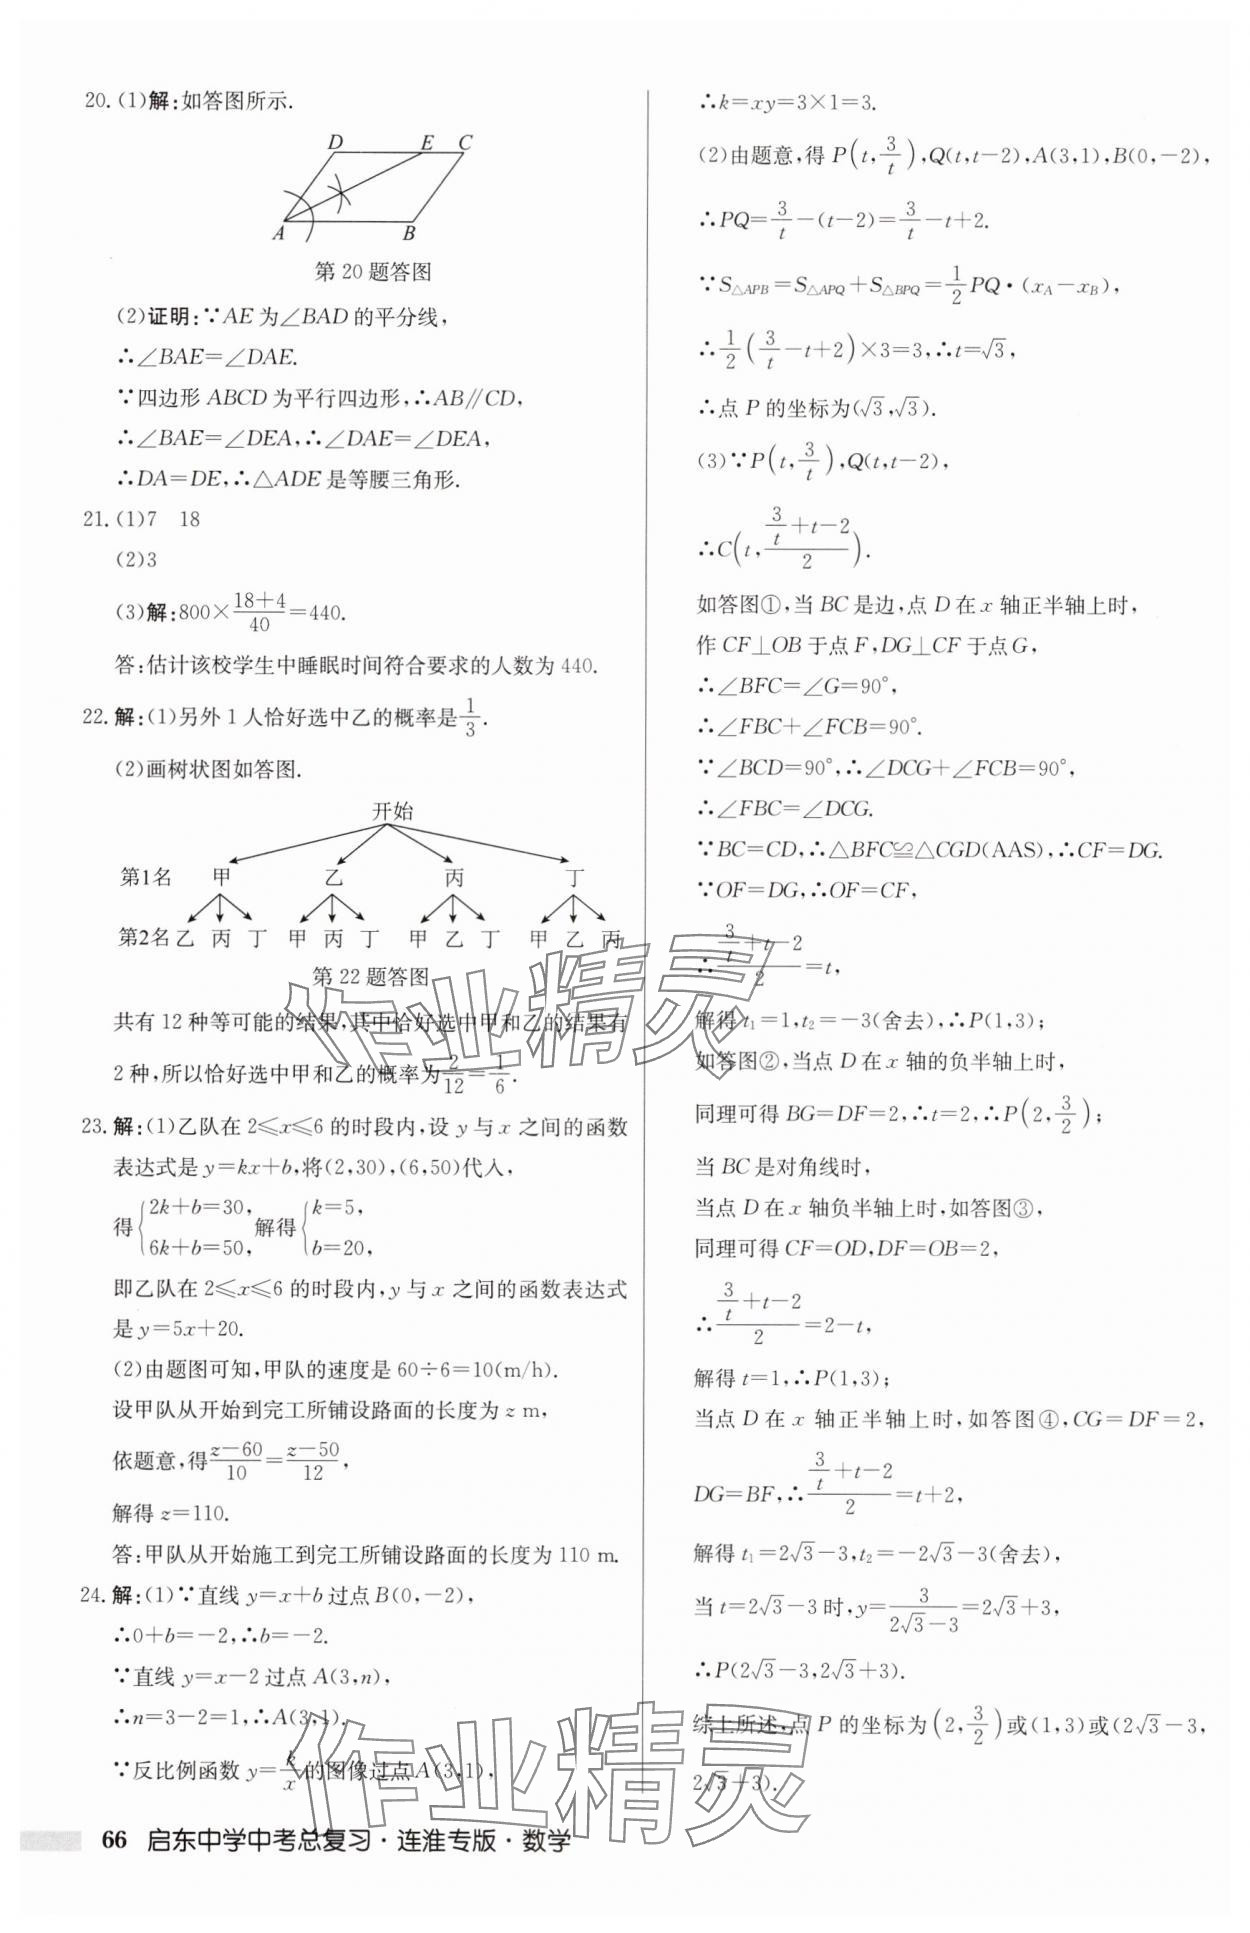 20.(1)解:如答图所示.
D E C
A B
第20题答图
(2)证明:∵AE为∠BAD的平分线,
∴∠BAE=∠DAE.
∵四边形ABCD为平行四边形,∴AB∥CD,
∴∠BAE=∠DEA,∴∠DAE=∠DEA,
∴DA=DE,∴△ADE是等腰三角形.
21.(1)7 18
(2)3
(3)解:800×\frac{18+4}{40}=440.
答:估计该校学生中睡眠时间符合要求的人数为440.
22.解:(1)另外1人恰好选中乙的概率是\frac{1}{3}.
(2)画树状图如答图.
开始
第1名 甲 乙 丙 丁
第2名 乙 丙 丁 甲 丙 丁 甲 乙 丁 甲 乙 丙
第22题答图
共有12种等可能的结果,其中恰好选中甲和乙的结果有
2种,所以恰好选中甲和乙的概率为\frac{2}{12}=\frac{1}{6}.
23.解:(1)乙队在2≤x≤6的时段内,设y与x之间的函数
表达式是y=kx+b,将(2,30),(6,50)代入,
得{2k+b=30, 6k+b=50, 解得{k=5, b=20,
即乙队在2≤x≤6的时段内,y与x之间的函数表达式
是y=5x+20.
(2)由题图可知,甲队的速度是60÷6=10(m/h).
设甲队从开始到完工所铺设路面的长度为z m,
依题意,得\frac{z-60}{10}=\frac{z-50}{12},
解得z=110.
答:甲队从开始施工到完工所铺设路面的长度为110 m.
24.解:(1)∵直线y=x+b过点B(0,-2),
∴0+b=-2,∴b=-2.
∵直线y=x-2过点A(3,n),
∴n=3-2=1,∴A(3,1).
∵反比例函数y=\frac{k}{x}的图像过点A(3,1),
∴k=xy=3×1=3.
(2)由题意,得P(t,\frac{3}{t}),Q(t,t-2),A(3,1),B(0,-2),
∴PQ=\frac{3}{t}-(t-2)=\frac{3}{t}-t+2.
∵S△APB=S△APQ+S△BPQ=\frac{1}{2}PQ·(xA-xB),
∴\frac{1}{2}(\frac{3}{t}-t+2)×3=3,∴t=√3,
∴点P的坐标为(√3,√3).
(3)∵P(t,\frac{3}{t}),Q(t,t-2),
∴C(t,\frac{\frac{3}{t}+t-2}{2}).
如答图①,当BC是边,点D在x轴正半轴上时,
作CF⊥OB于点F,DG⊥CF于点G,
∴∠BFC=∠G=90°,
∴∠FBC+∠FCB=90°.
∵∠BCD=90°,∴∠DCG+∠FCB=90°,
∴∠FBC=∠DCG.
∵BC=CD,∴△BFC≌△CGD(AAS),∴CF=DG.
∵OF=DG,∴OF=CF,
∴\frac{\frac{3}{t}+t-2}{2}=t,
解得t₁=1,t₂=-3(舍去),∴P(1,3);
如答图②,当点D在x轴的负半轴上时,
同理可得BG=DF=2,∴t=2,∴P(2,\frac{3}{2});
当BC是对角线时,
当点D在x轴负半轴上时,如答图③,
同理可得CF=OD,DF=OB=2,
∴\frac{\frac{3}{t}+t-2}{2}=2-t,
解得t=1,∴P(1,3);
当点D在x轴正半轴上时,如答图④,CG=DF=2,
DG=BF,∴\frac{\frac{3}{t}+t-2}{2}=t+2,
解得t₁=2√3-3,t₂=-2√3-3(舍去),
当t=2√3-3时,y=\frac{3}{2√3-3}=2√3+3,
∴P(2√3-3,2√3+3).
综上所述,点P的坐标为(2,\frac{3}{2})或(1,3)或(2√3-3,
2√3+3).
作业精灵
作业精灵
66 启东中学中考总复习·连淮专版·数学